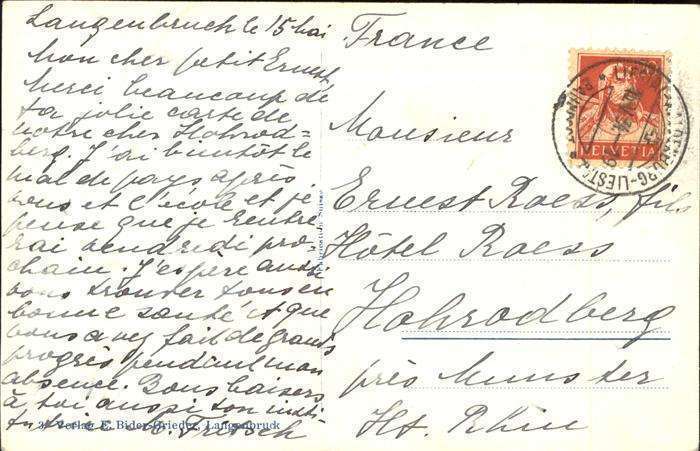 Langenbruck le 15 Mai
Mon cher petit Ernest,
Merci beaucoup de
ta jolie carte de
notre cher Hohrod=
berg. J'ai bientôt le
mal de pays après
vous et l'école et je
pense que je rentre
rai vendredi pro=
chain. J'espère aussi
vous trouver tous en
bonne santé et que
vous avez fait de grands
progrès pendant mon
absence. Bons baisers
à toi aussi ton insti
tutrice C. Fritsch
France
Monsieur
Ernest Roess, fils
Hôtel Roess
Hohrodberg
près Munster
Ht. Rhin
HELVETIA
3 Verlag E. Bider-Grieder, Langenbruck